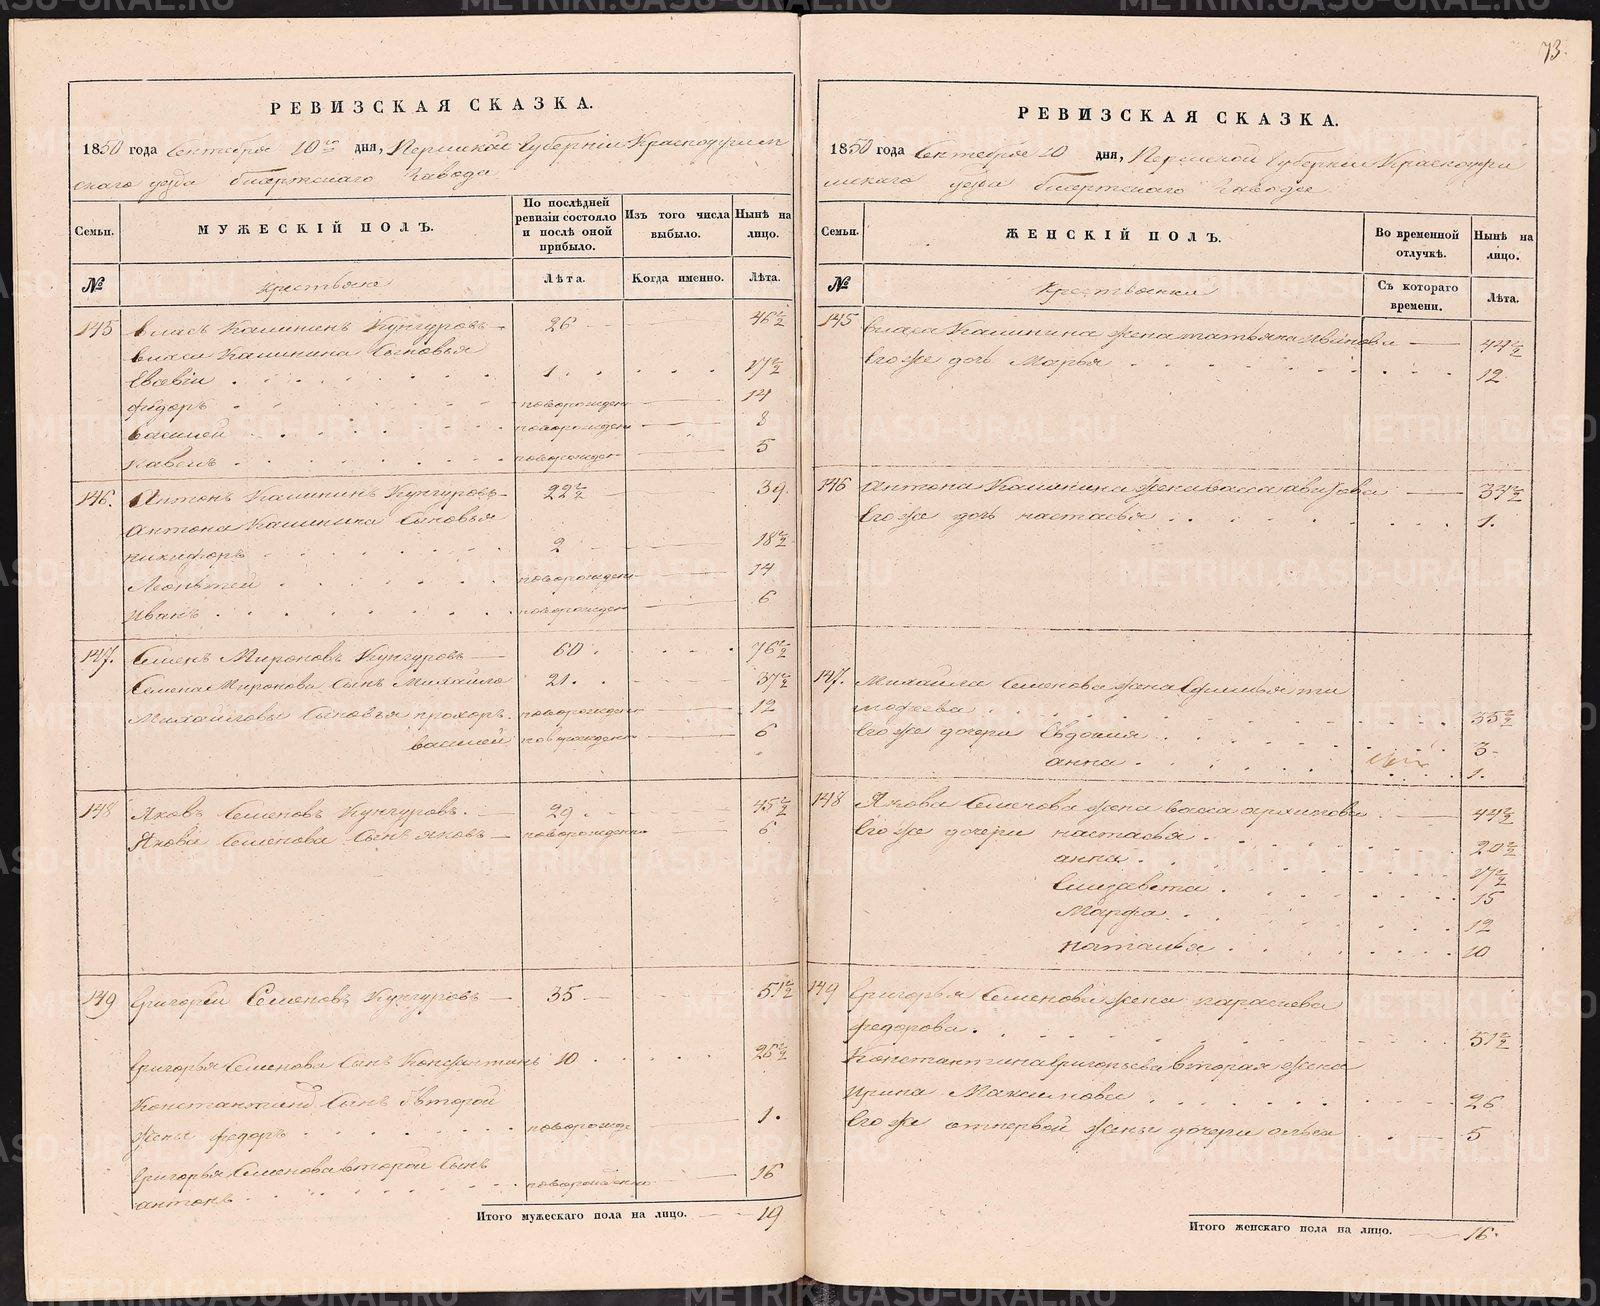 73.
РЕВИЗСКАЯ СКАЗКА.
1850 года Сентября 10го дня, Пермской Губерніи Красноуфим
скаго уезда бисертскаго Завода
Семьи. МУЖЕСКІЙ ПОЛЪ. По послѣдней ревизіи состояло и послѣ оной прибыло. Изъ того числа выбыло. Нынѣ на лицо.
№ Крестьяне Лѣта. Когда именно. Лѣта.
145 власъ Калининъ Кунгуровъ 26 46½
власа Калинина Сыновья
Евсевіи 1. 17½
федоръ новорожден 14
василей новорожден 8
павелъ новорожден 5
146. Антонъ Калининъ Кунгуровъ 22½ 39.
Антона Калинина Сыновья
никифоръ 2 18½
Леонтей новорожден 14
иванъ новорожден 6
147. Семенъ Мироновъ Кунгуровъ 60. 76½
Семена Миронова Сынъ Михайло 21. 37½
Михайловы Сыновья прохоръ новорожден 12
василей новорожден 6
148 Яковъ Семеновъ Кунгуровъ. 29. 45½
Якова Семенова Сынъ яковъ новорожденн 6
149 Григорей Семеновъ Кунгуровъ 35 51½
Григорья Семенова Сынъ Константинъ 10 26½
Сынъ второй
жены федоръ новорожде 1.
Григорья Семенова второй Сынъ
антонъ новорожденн 16
Итого мужескаго пола на лицо. 19
РЕВИЗСКАЯ СКАЗКА.
1850 года Сентября 10 дня, Пермской Губерніи Красноуфи
мскаго уезда бисертскаго Завода
Семьи. ЖЕНСКІЙ ПОЛЪ. Во временной отлучкѣ. Нынѣ на лицо.
№ Крестьянки Съ котораго времени. Лѣта.
145 власа Калинина жена татьяна 44½
Егоже дочь Марья 12
146 Антона Калинина жена васса 37½
Егоже дочь настасья 1.
147. Михайла Семенова жена Ефимья ти
мофеева 35½
Егоже дочери Евдокия 3
анна 1.
148 Якова Семенова жена васса архипова 44½
Егоже дочери настасья 20½
анна 17½
Елизавета 15
Марфа 12
наталья 10
149 Григорья Семенова жена парасковья
федорова. 51½
Константина Григорьева вторая жена
ирина Максимова 26
Егоже отпервой жены дочери 5
Итого женскаго пола на лицо. 16.
METRIKI.GASO-URAL.RU